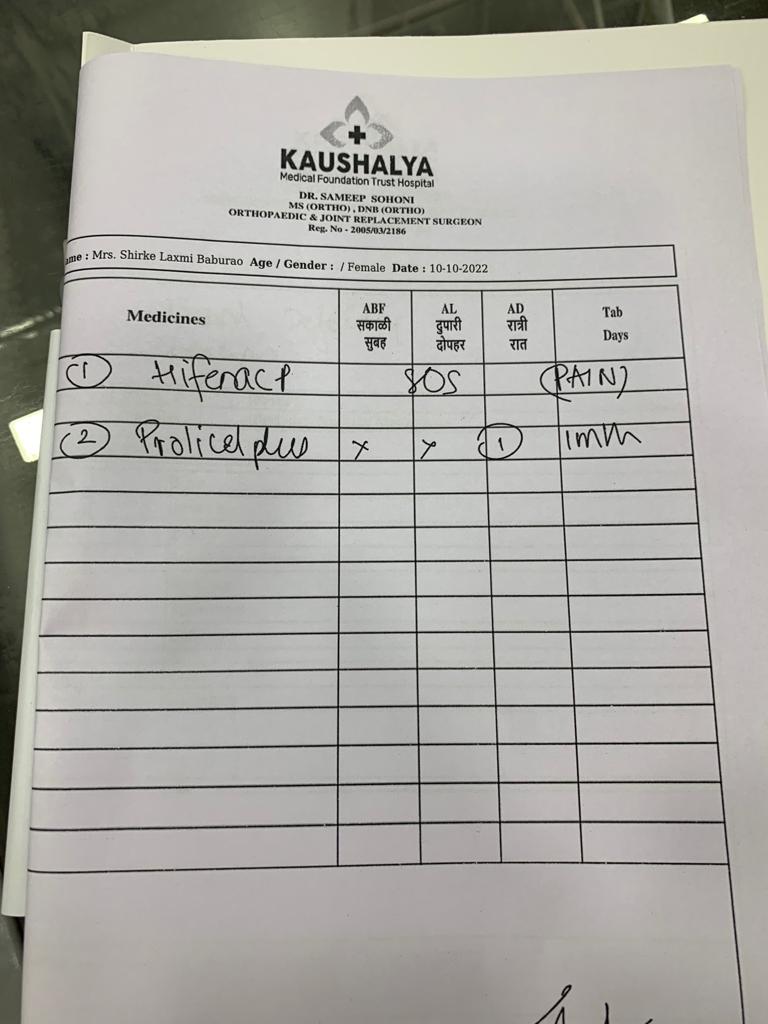 KAUSHALYA
Medical Foundation Trust Hospital
DR. SAMEEP SOHONI
MS (ORTHO) , DNB (ORTHO)
ORTHOPAEDIC & JOINT REPLACEMENT SURGEON
Reg. No - 2005/03/2186
ame : Mrs. Shirke Laxmi Baburao Age / Gender : / Female Date : 10-10-2022
Medicines ABF AL AD Tab
सकाळी दुपारी रात्री Days
सुबह दोपहर रात
1 Hifenac P SOS (PAIN)
2 plus x x 1 1mth